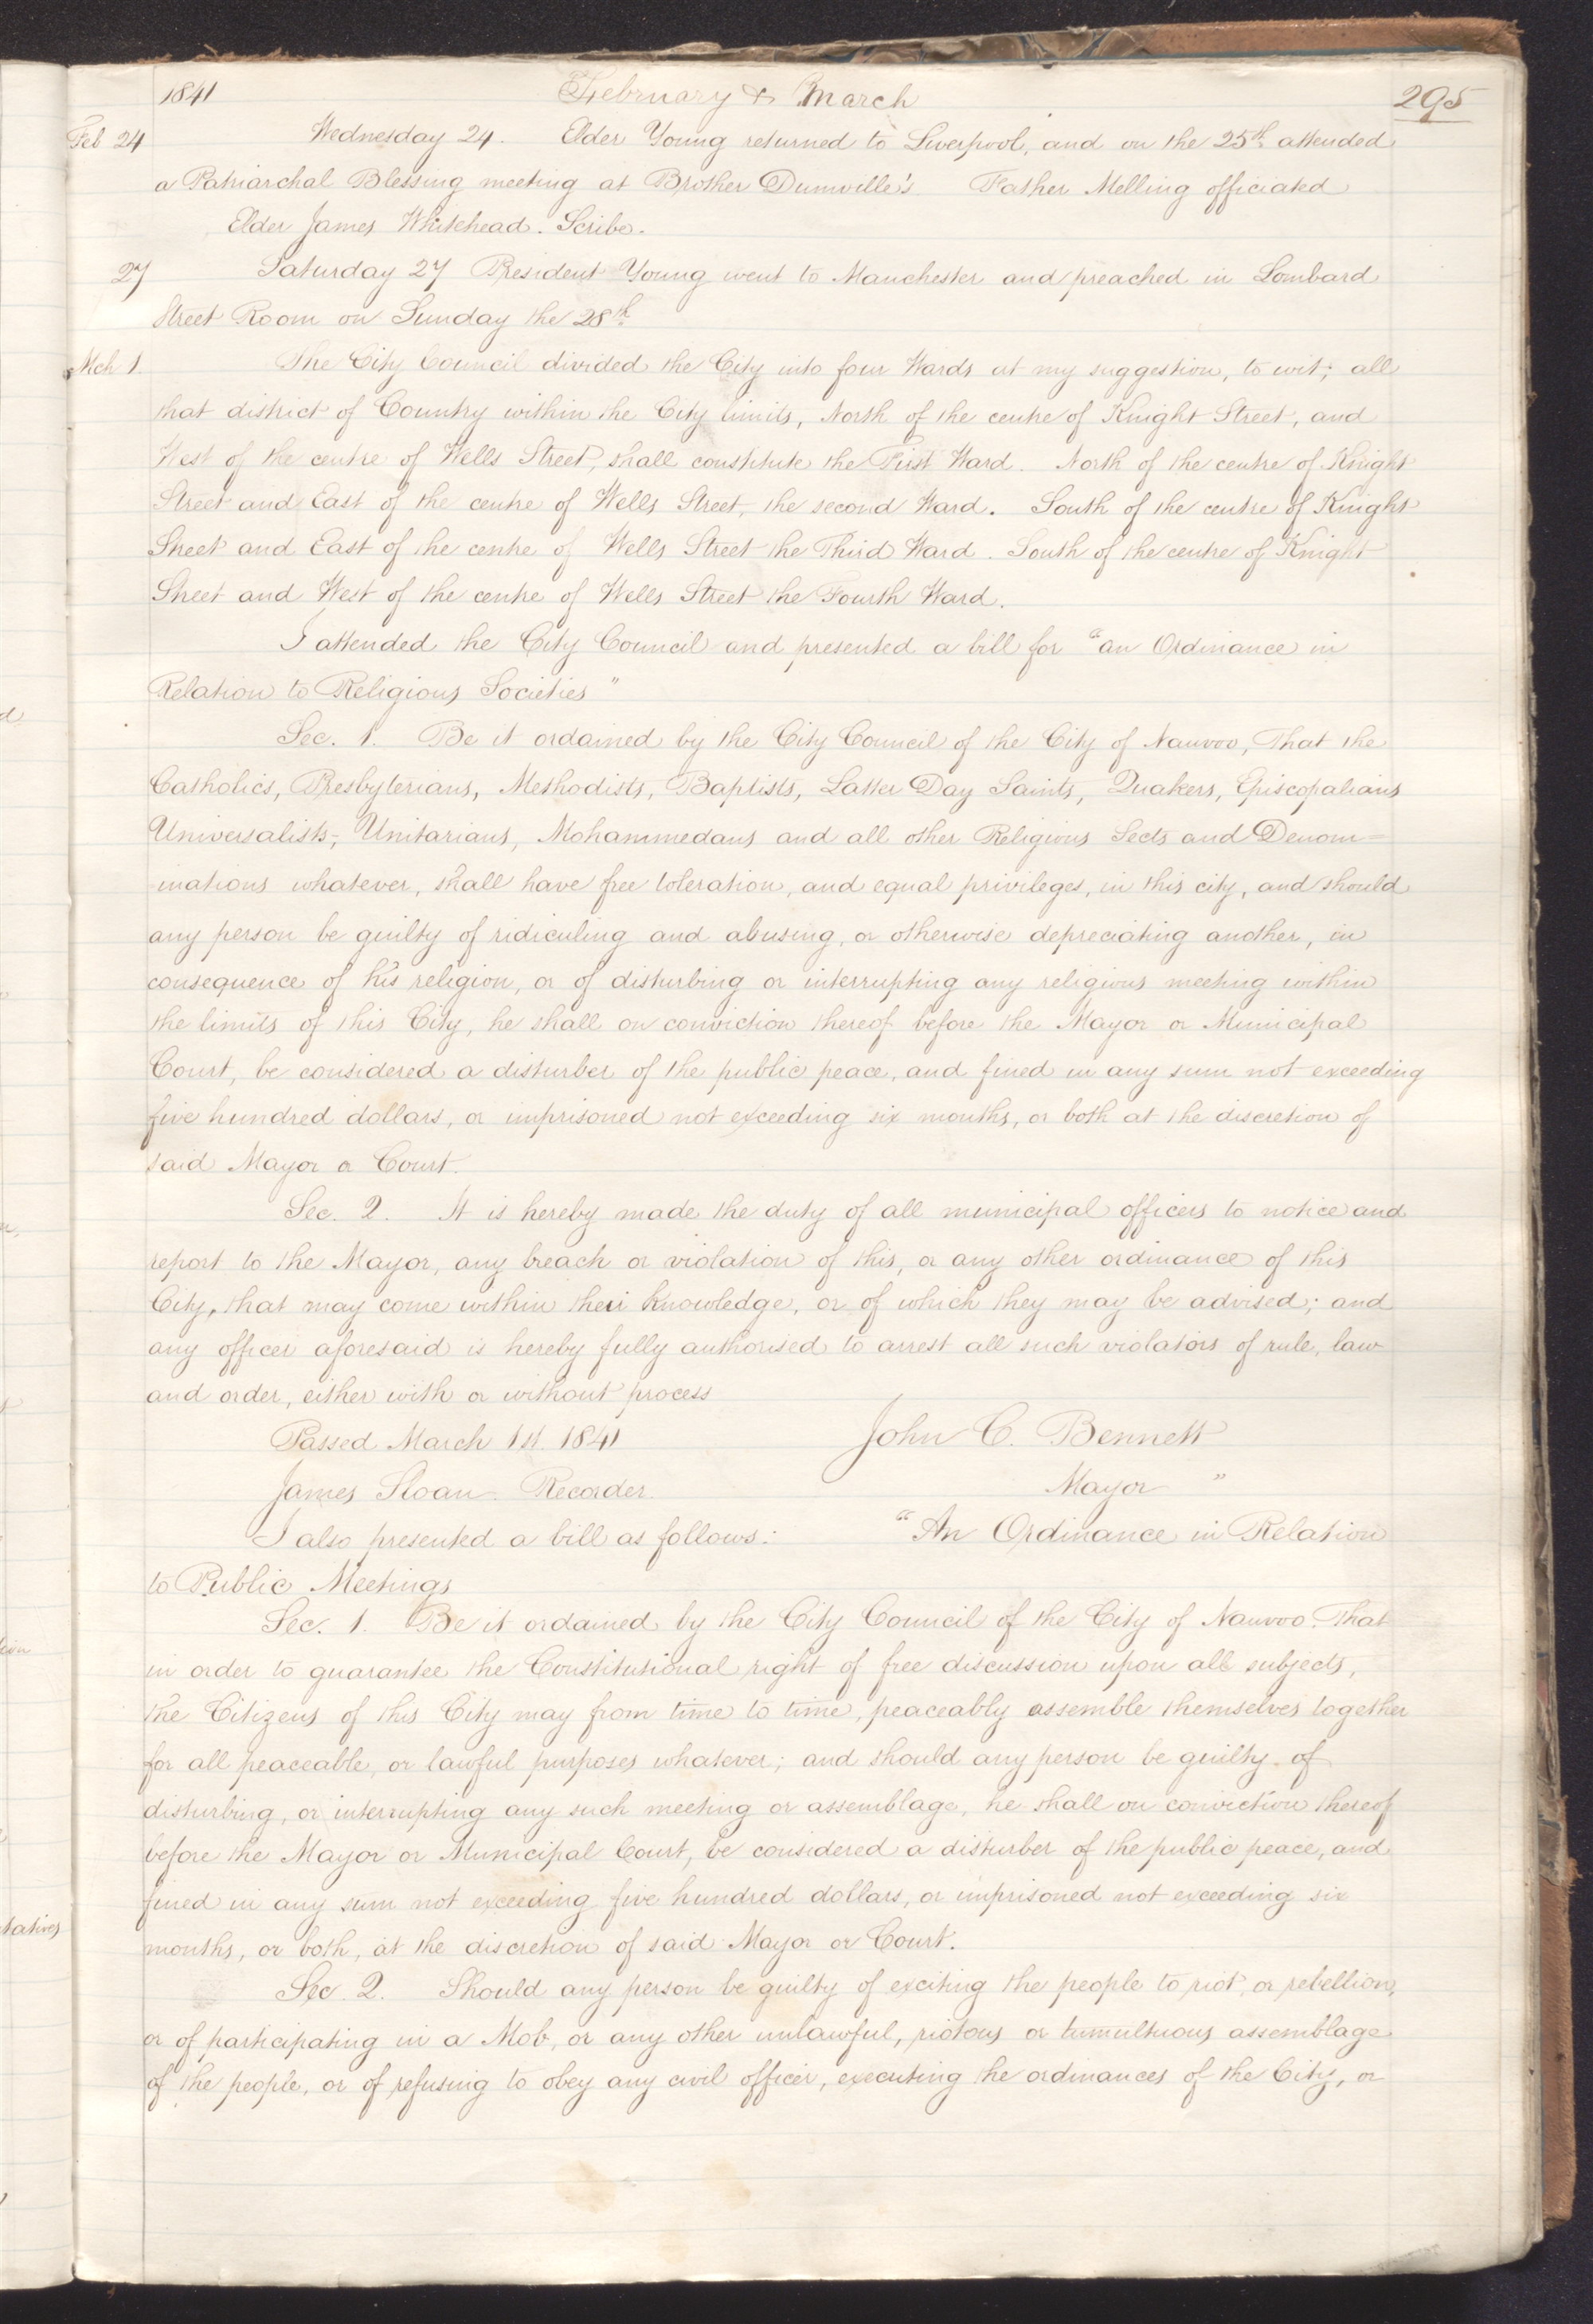 1841 February & March 295
Feb 24 Wednesday 24. Elder Young returned to Liverpool, and on the 25th attended
a Patriarchal Blessing meeting at Brother Dumville's Father Melling officiated
Elder James Whitehead. Scribe.
27 Saturday 27 President Young went to Manchester and preached in Lombard
Street Room on Sunday the 28th
Mch 1 The City Council divided the City into four Wards at my suggestion, to wit; all
that district of Country within the City limits, North of the centre of Knight Street, and
West of the centre of Wells Street, shall constitute the First Ward. North of the centre of Knight
Street and East of the centre of Wells Street, the second Ward. South of the centre of Knight
Street and East of the centre of Wells Street the Third Ward. South of the centre of Knight
Street and West of the centre of Wells Street the Fourth Ward.
I attended the City Council and presented a bill for "an Ordinance in
Relation to Religious Societies"
Sec. 1. Be it ordained by the City Council of the City of Nauvoo, That the
Catholics, Presbyterians, Methodists, Baptists, Latter Day Saints, Quakers, Episcopalians
Universalists, Unitarians, Mohammedans and all other Religious Sects and Denom=
inations whatever, shall have free toleration, and equal privileges, in this city, and should
any person be guilty of ridiculing and abusing, or otherwise depreciating another, in
consequence of his religion, or of disturbing or interrupting any religious meeting within
the limits of this City, he shall on conviction thereof before the Mayor or Municipal
Court, be considered a disturber of the public peace, and fined in any sum not exceeding
five hundred dollars, or imprisoned not exceeding six months, or both at the discretion of
said Mayor or Court.
Sec. 2. It is hereby made the duty of all municipal officers to notice and
report to the Mayor, any breach or violation of this, or any other ordinance of this
City, that may come within their knowledge, or of which they may be advised; and
any officer aforesaid is hereby fully authorised to arrest all such violators of rule, law
and order, either with or without process
Passed March 1st 1841 John C. Bennett
James Sloan. Recorder. Mayor "
I also presented a bill as follows: "An Ordinance in Relation
to Public Meetings
Sec. 1. Be it ordained by the City Council of the City of Nauvoo. That
in order to guarantee the Constitutional right of free discussion upon all subjects,
the Citizens of this City may from time to time, peaceably assemble themselves together
for all peaceable, or lawful purposes whatever; and should any person be guilty of
disturbing, or interrupting any such meeting or assemblage, he shall on conviction thereof
before the Mayor or Municipal Court, be considered a disturber of the public peace, and
fined in any sum not exceeding five hundred dollars, or imprisoned not exceeding six
months, or both, at the discretion of said Mayor or Court.
Sec. 2. Should any person be guilty of exciting the people to riot, or rebellion,
or of participating in a Mob, or any other unlawful, riotous or tumultuous assemblage
of the people, or of refusing to obey any civil officer, executing the ordinances of the City, or